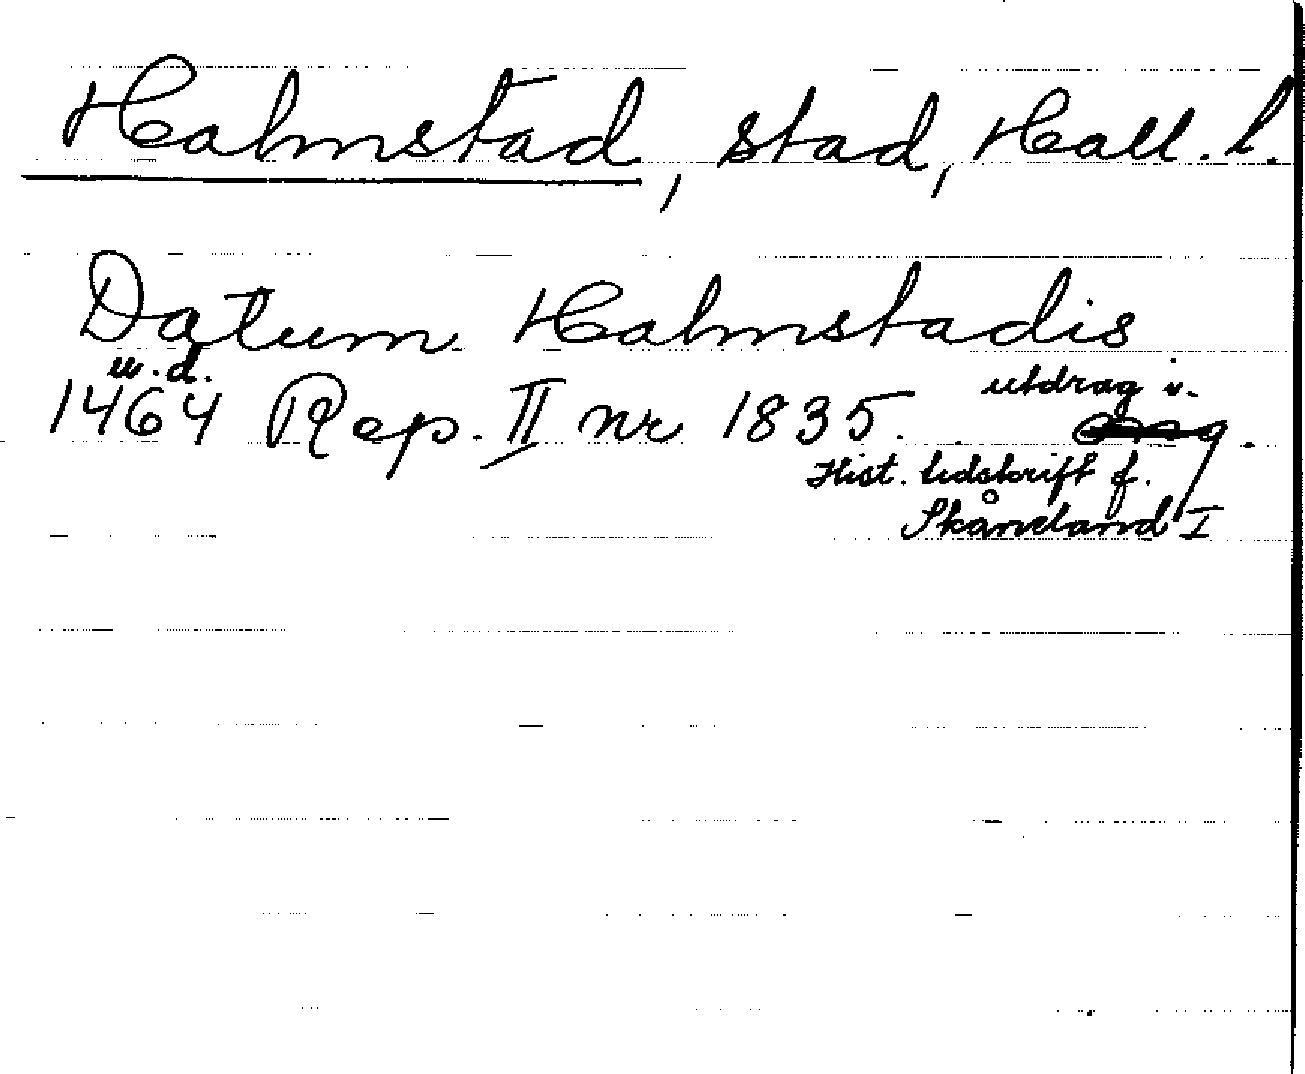 Halmstad, stad, Hall. l.
Datum Halmstadis
u. d.
1464 Rep. II nr 1835. utdrag i.
Hist. tidskrift f.
Skåneland I